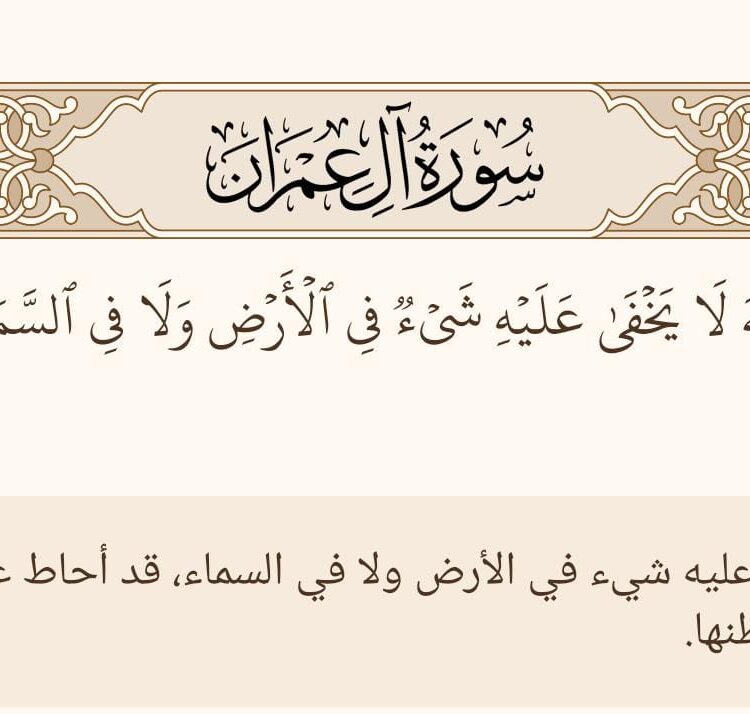 سُورَةُ آلِ عِمْرَان
لَا يَخْفَىٰ عَلَيْهِ شَيْءٌ فِي ٱلْأَرْضِ وَلَا فِي
عليه شيء في الأرض ولا في السماء، قد أحاط